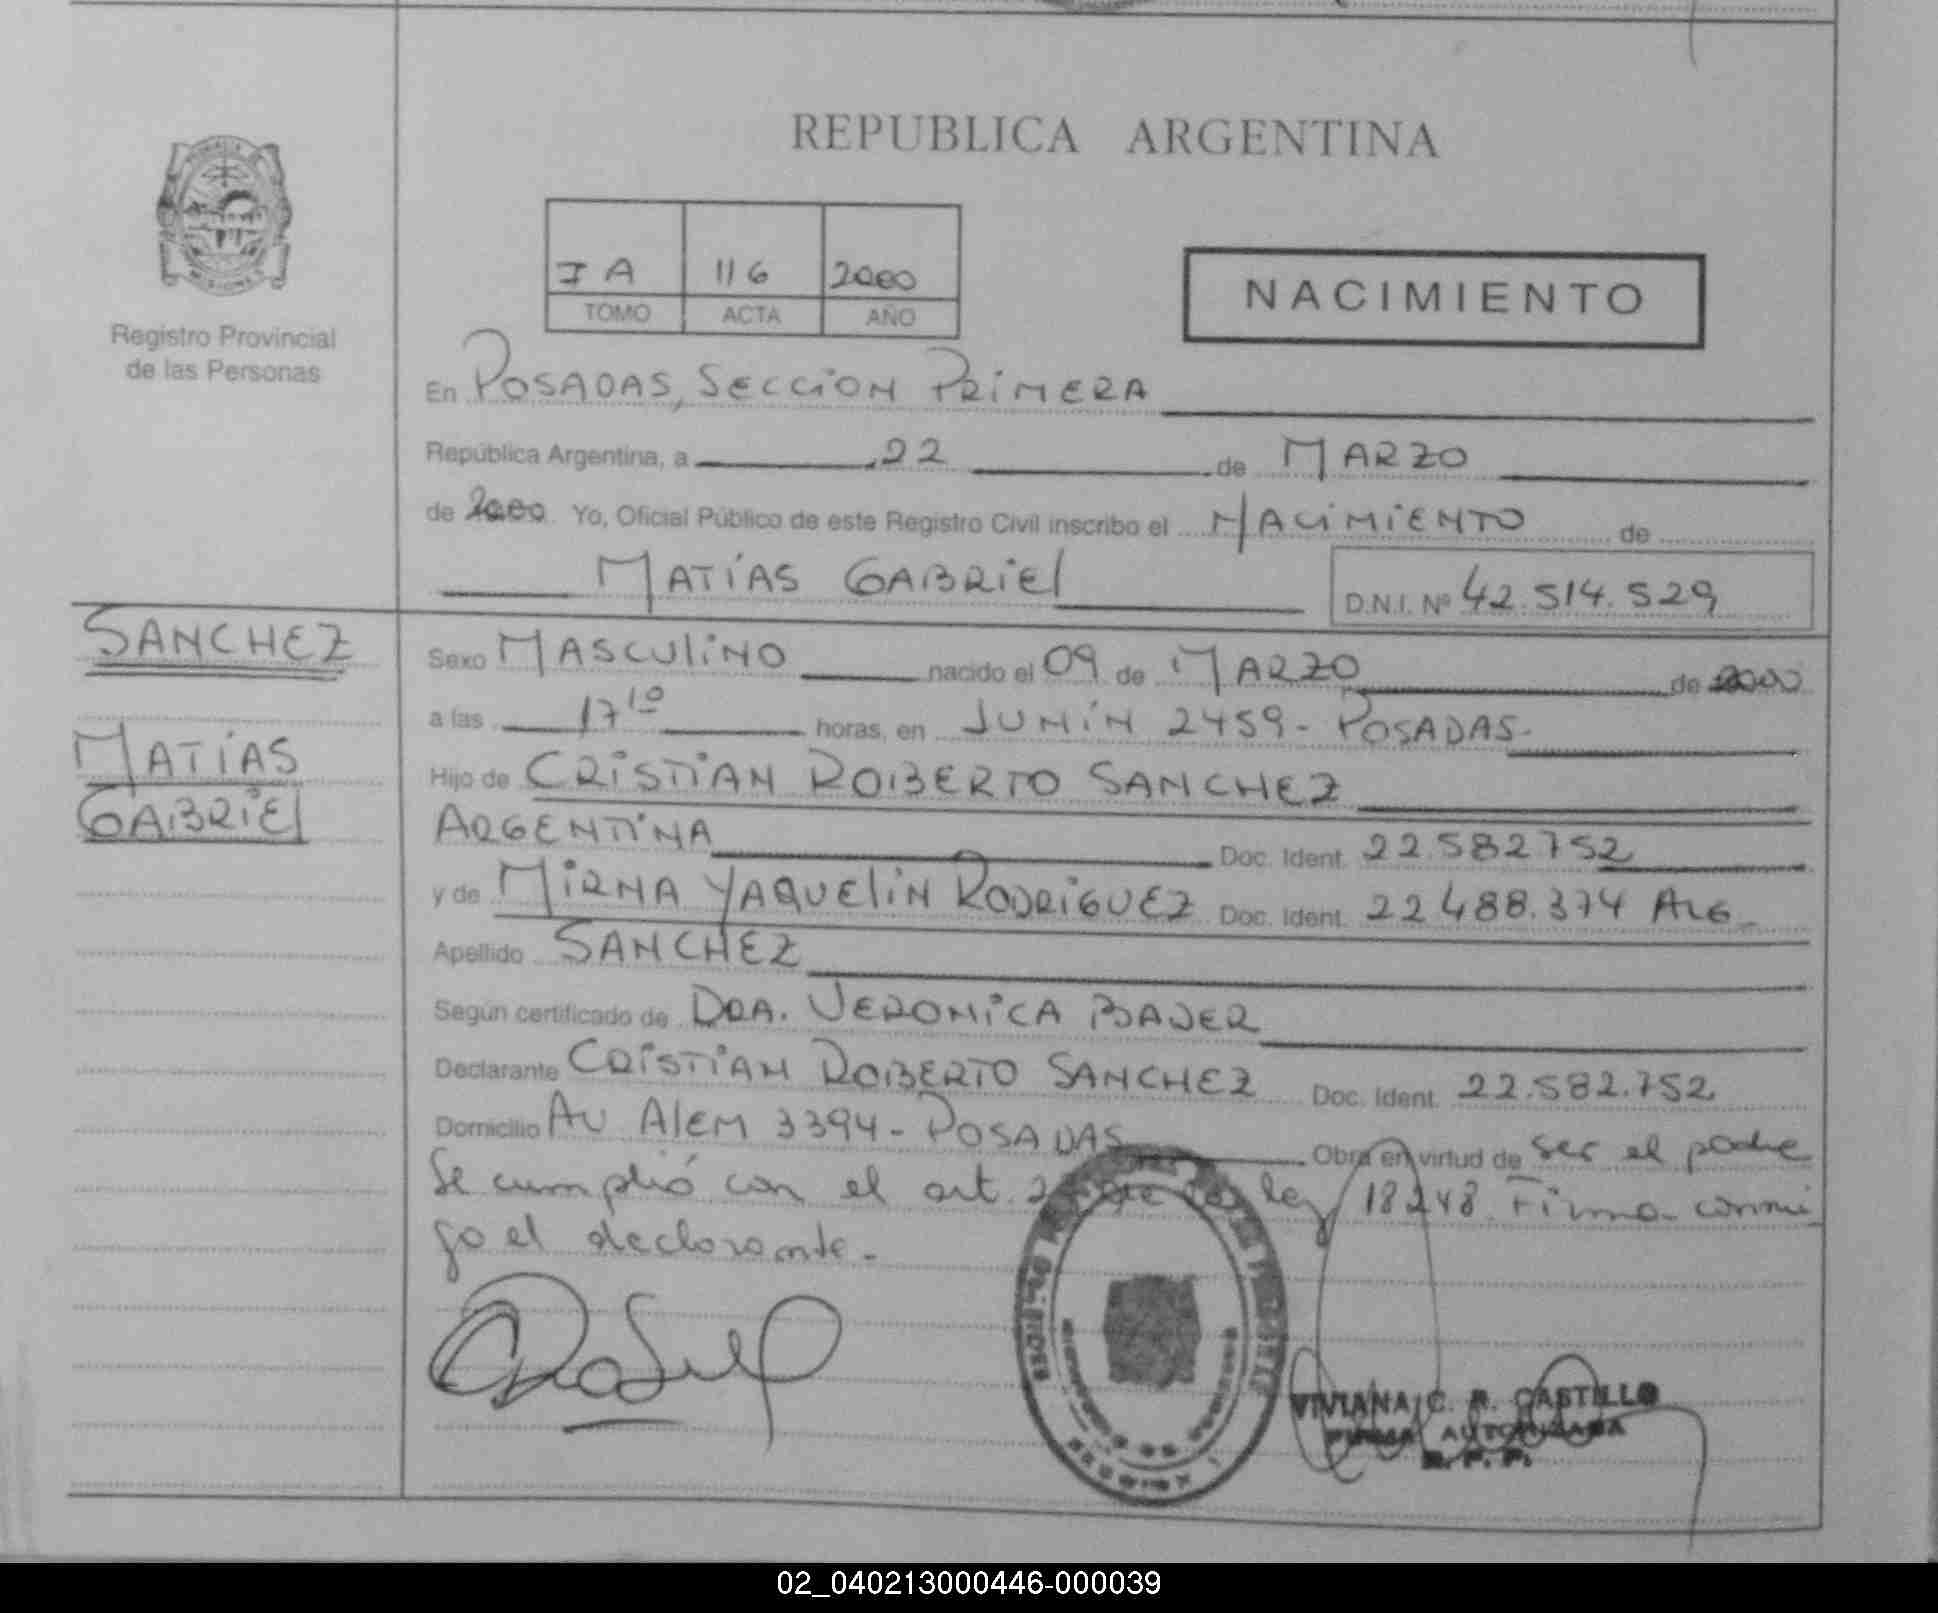 REPUBLICA ARGENTINA
I A 116 2000
TOMO ACTA AÑO
NACIMIENTO
Registro Provincial
de las Personas
En POSADAS, SECCION PRIMERA
República Argentina, a 22 de MARZO
de 2000 Yo, Oficial Público de este Registro Civil inscribo el NACIMIENTO de
MATÍAS GABRIEL D.N.I. Nº 42.514.529
SANCHEZ
MATÍAS
GABRIEL
Sexo MASCULINO nacido el 09 de MARZO de 2000
a las 17 10 horas, en JUNIN 2459 - POSADAS.
Hijo de CRISTIAN ROBERTO SANCHEZ
ARGENTINA Doc. Ident. 22.582752
y de MIRNA YAQUELIN RODRIGUEZ Doc. Ident. 22 488.374 ARG
Apellido SANCHEZ
Según certificado de DRA. VERONICA BAUER
Declarante CRISTIAN ROBERTO SANCHEZ Doc. Ident. 22.582.752
Domicilio AV ALEM 3394 - POSADAS Obra en virtud de ser el padre
Se cumplió con el art. de la ley 18248. Firma conmi
go el declarante.
VIVIANA C. R. CASTILLO
FIRMA AUTORIZADA
R. P. P.
02_040213000446-000039